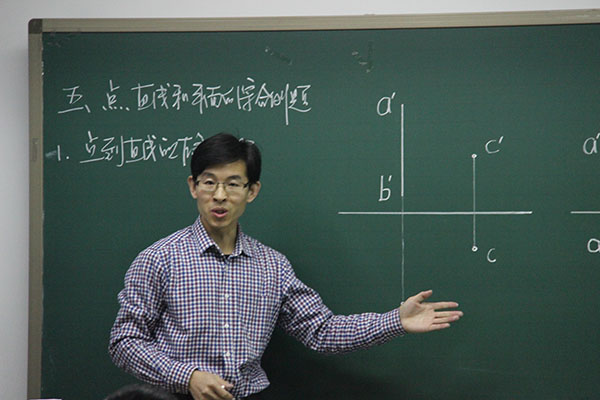 五、点直线和平面的综合例题
1. 点到直线的
a'
b'
c'
c
a'
a